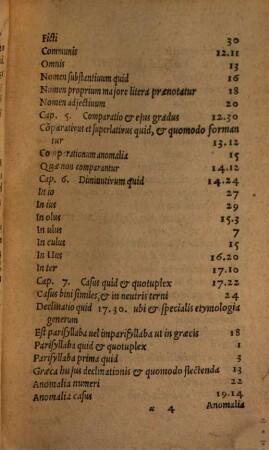 Ficti 30
Communis 12.11
Omnis 13
Nomen substantiuum quid 16
Nomen proprium majore litera prænotatur 18
Nomen adjectiuum 20
Cap. 5. Comparatio & ejus gradus 12.30
Cōparatiuus et superlatiuus quid, & quomodo forman
tur 13.12
Comparationum anomalia 15
Quæ non comparantur 14.12
Cap. 6. Diminutiuum quid 14.24
In io 27
In ius 29
In olus 15.3
In ulus 7
In culus 15
In Uus 16.20
In ter 17.10
Cap. 7. Casus quid & quotuplex 17.22
Casus bini similes, & in neutris terni 24
Declinatio quid 17.30. ubi & specialis etymologia
generum
Est parisyllaba uel imparisyllaba ut in græcis 18
Parisyllaba quid & quotuplex 1
Parisyllaba prima quid 3
Græca hujus declinationis & quomodo flectenda 13
Anomalia numeri 22
Anomalia casus 19.14
4 Anomalia